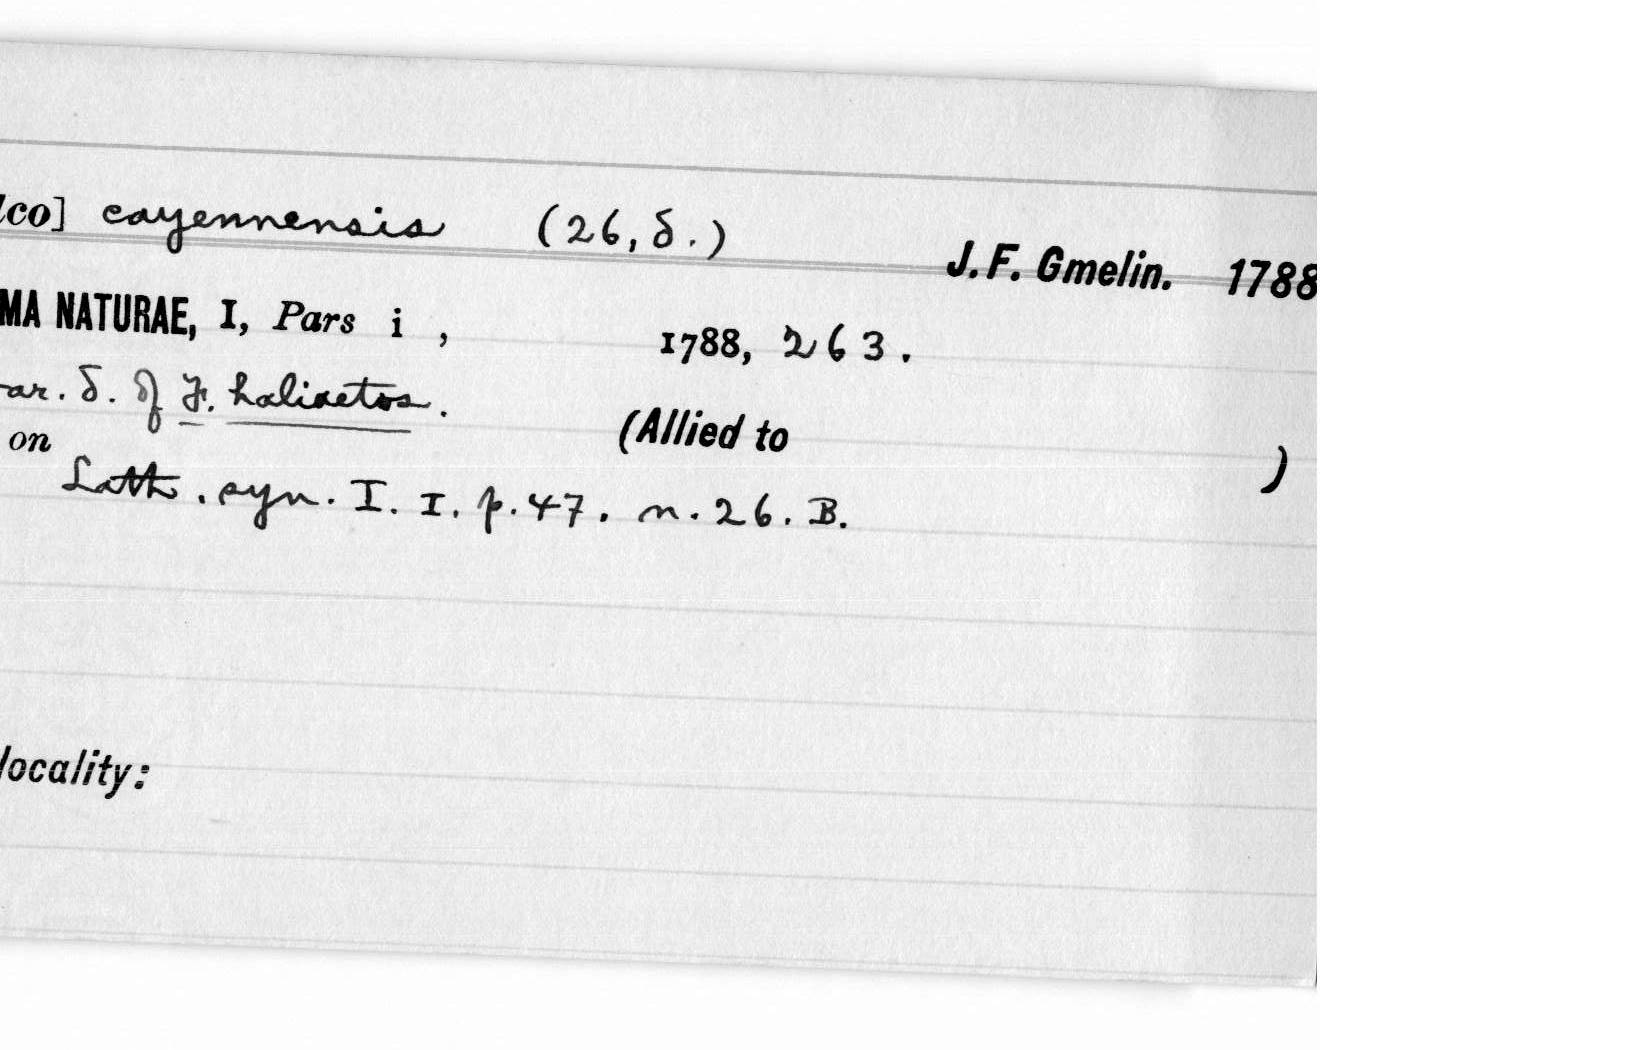 lco] cayennensis (26, δ.)
J. F. Gmelin. 1788
MA NATURAE, I, Pars i , 1788, 263.
ar. δ. of F. haliaetos.
(Allied to )
on
Lath. syn. I. I. p. 47. n. 26. B.
locality: